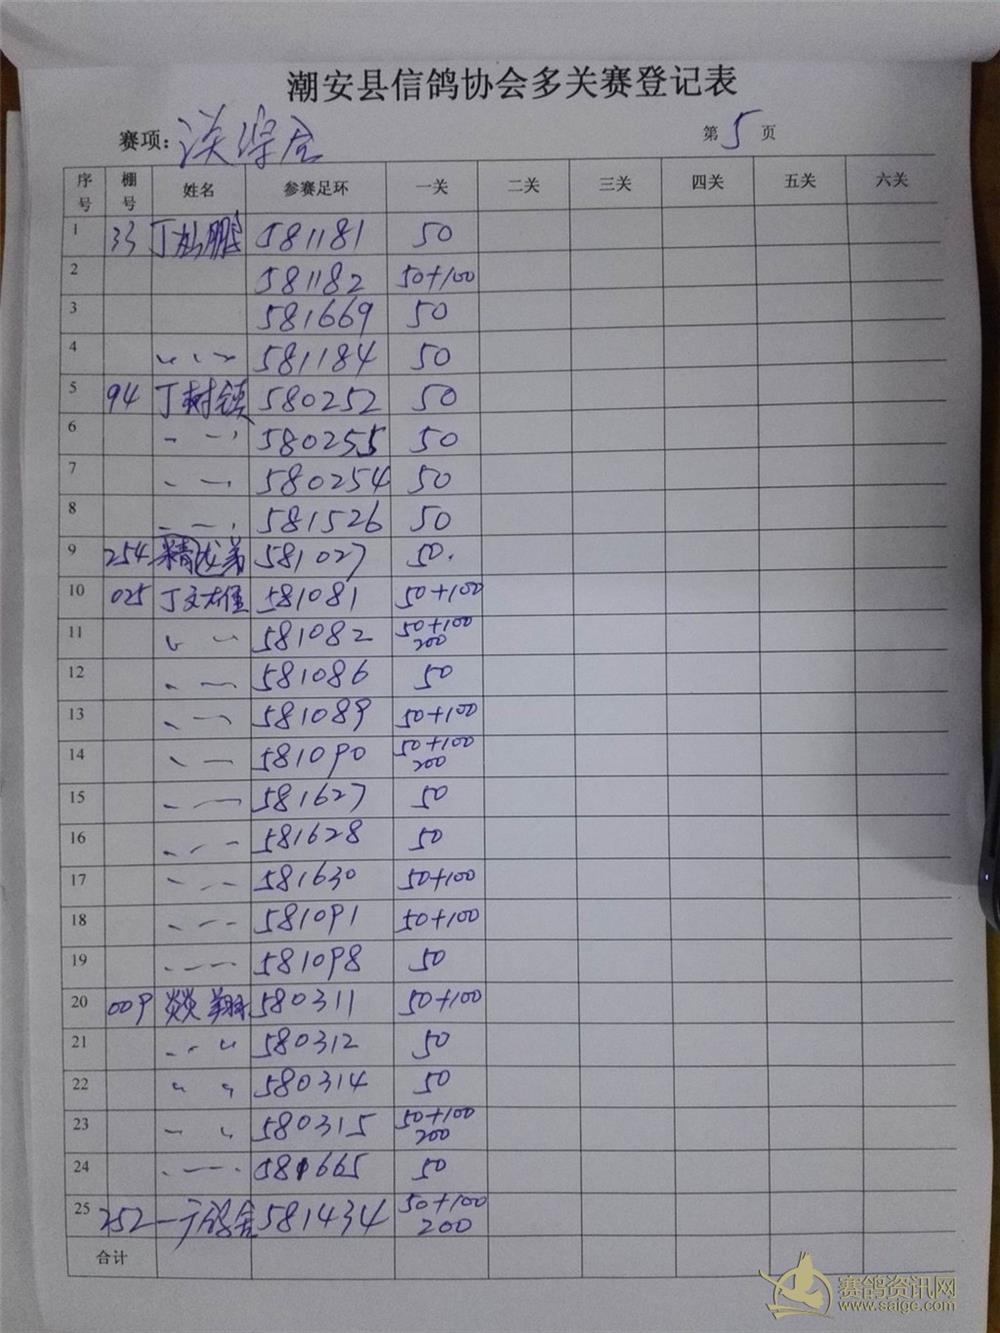 潮安县信鸽协会多关赛登记表
赛项: 第5页
序号 棚号 姓名 参赛足环 一关 二关 三关 四关 五关 六关
1 33 丁 鹏 581181 50
2 581182 50+100
3 581669 50
4 581184 50
5 94 丁树镇 580252 50
6 580255 50
7 580254 50
8 581526 50
9 254 581027 50.
10 025 丁文 581081 50+100
11 581082 50+100 200
12 581086 50
13 581089 50+100
14 581090 50+100 200
15 581627 50
16 581628 50
17 581630 50+100
18 581091 50+100
19 581098 50
20 009 翔 580311 50+100
21 580312 50
22 580314 50
23 580315 50+100 200
24 581665 50
25 252 581434 50+100 200
合计
赛鸽资讯网
www.saige.com